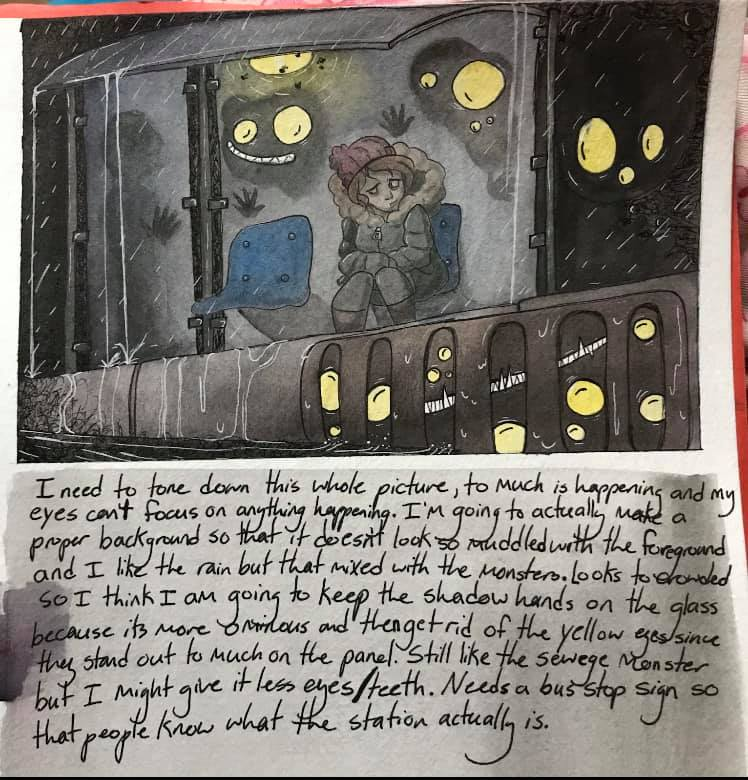 I need to tone down this whole picture, to much is happening and my
eyes can't focus on anything happening. I'm going to actually make a
proper background so that it doesn't look so muddled with the foreground
and I like the rain but that mixed with the monsters. Looks to crowded
so I think I am going to keep the shadow hands on the glass
because its more ominous and then get rid of the yellow eyes since
they stand out to much on the panel. Still like the sewege monster
but I might give it less eyes/teeth. Needs a bus stop sign so
that people know what the station actually is.